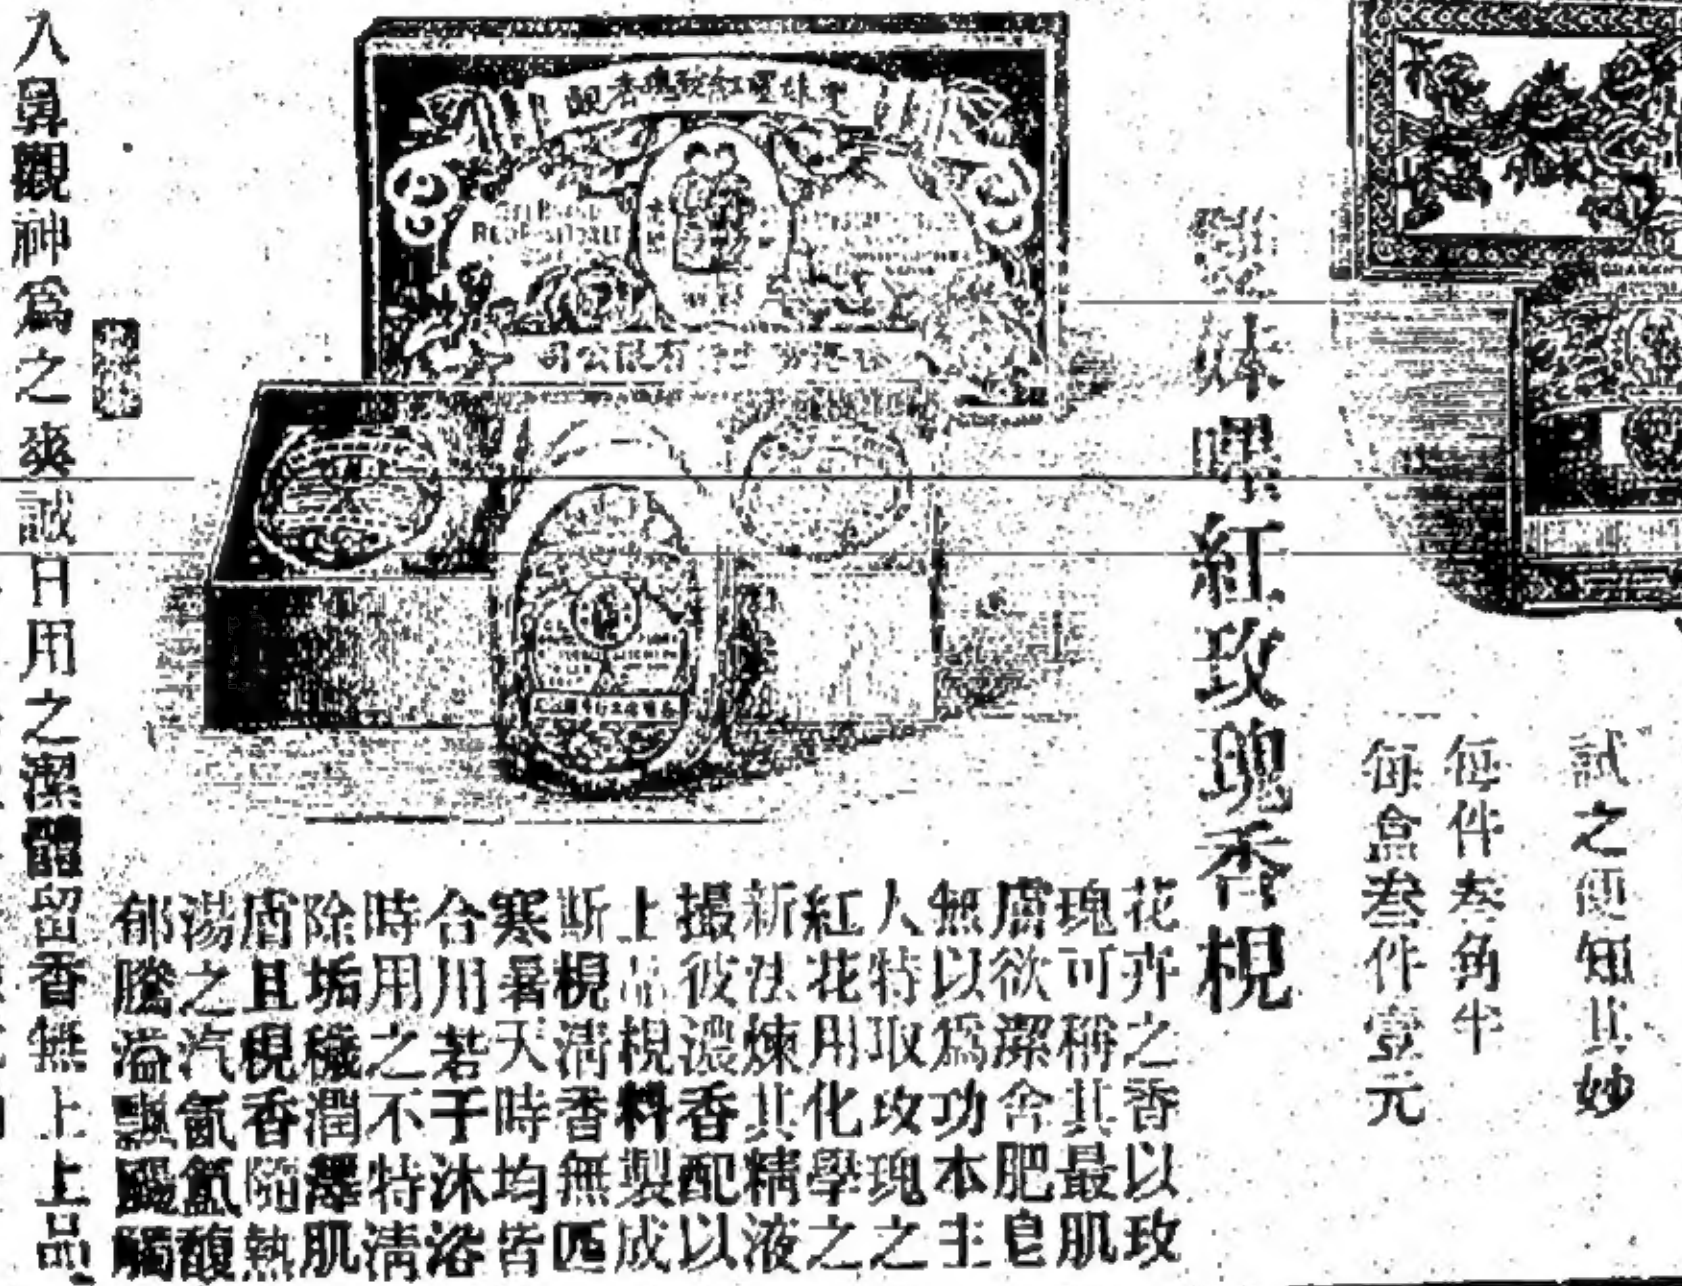 試之便知其妙
每件叁角半
每盒叁件壹元
妹嚜紅玫瑰香梘
花卉之香以玫
瑰可稱其最肌
膚欲潔舍肥皂
無以為功本主
人特取玫瑰之
紅花用化學之
新法煉其精液
撮彼濃香配以
上品梘料製成
斯梘清香無匹
寒暑天時均皆
合用若于沐浴
時用之不特清
除垢穢潤澤肌
膚且梘香隨熱
湯之汽氤氳馥
郁騰溢飄颺觸
入鼻觀神爲之爽誠日用之潔體留香無上上品
紅玫瑰香梘
有限公司